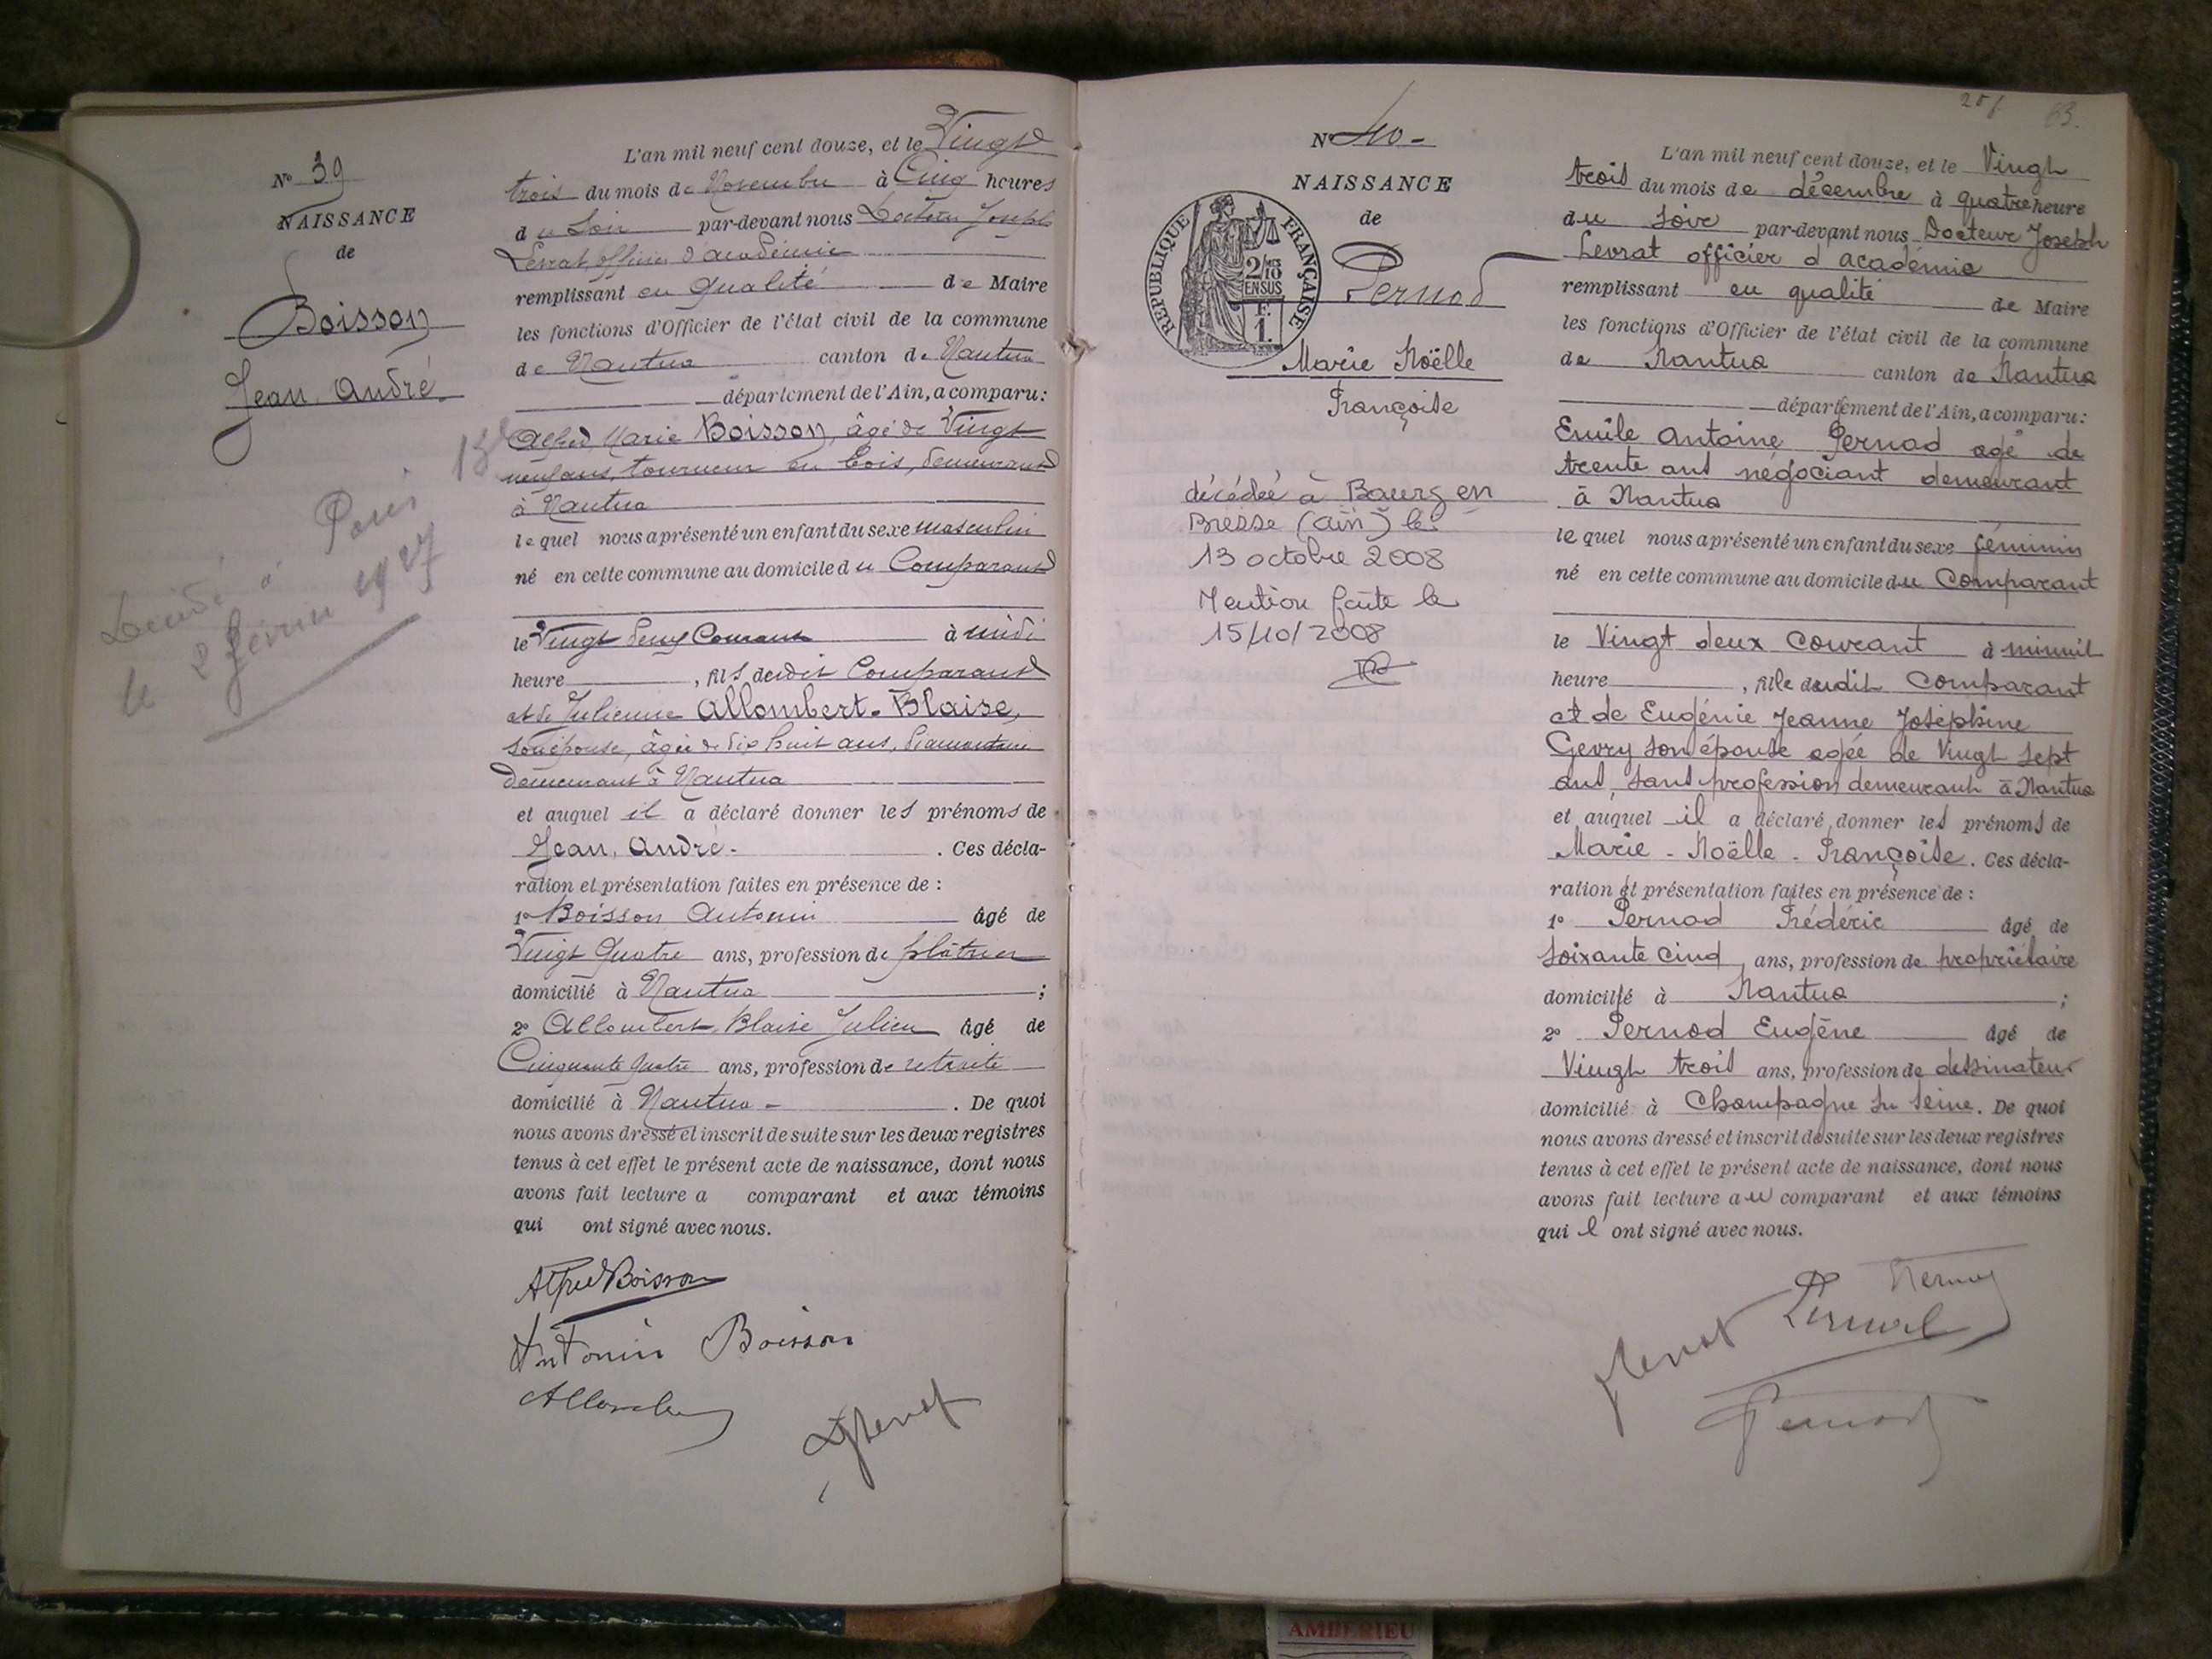 N° 39
NAISSANCE
de
Boisson
Jean André
Décédé à Paris 13e
le 2 février 1927
L'an mil neuf cent douze, et le Vingt
trois du mois de Novembre à Cinq heures
du Soir par-devant nous Docteur Joseph
Levrat, officier d'académie
remplissant en qualité de Maire
les fonctions d'Officier de l'état civil de la commune
de Nantua canton de Nantua
département de l'Ain, a comparu:
Alfred Marie Boisson, âgé de Vingt
neuf ans, tourneur en bois, demeurant
à Nantua
lequel nous a présenté un enfant du sexe masculin
né en cette commune au domicile du Comparant
le Vingt deux Courant à midi
heure , fils dudit Comparant
et de Julienne Allombert-Blaise,
son épouse, âgée de dix huit ans,
demeurant à Nantua
et auquel il a déclaré donner les prénoms de
Jean, André. . Ces décla-
ration et présentation faites en présence de :
1° Boisson Antonin âgé de
Vingt Quatre ans, profession de plâtrier
domicilié à Nantua ;
2° Allombert Blaise Julien âgé de
Cinquante quatre ans, profession de retraité
domicilié à Nantua - . De quoi
nous avons dressé et inscrit de suite sur les deux registres
tenus à cet effet le présent acte de naissance, dont nous
avons fait lecture a comparant et aux témoins
qui ont signé avec nous.
Alfred Boisson
Antonin Boisson
N° 40-
NAISSANCE
de
Pernod
Marie Noëlle
Françoise
REPUBLIQUE FRANÇAISE
2/10
EN SUS
F.
1.
décédée à Bourg en
Bresse (ain) le
13 octobre 2008
Mention faite le
15/10/2008
63.
L'an mil neuf cent douze, et le Vingt
trois du mois de décembre à quatre heure
du soir par-devant nous Docteur Joseph
Levrat officier d'academie
remplissant en qualité de Maire
les fonctions d'Officier de l'état civil de la commune
de Nantua canton de Nantua
département de l'Ain, a comparu:
Emile Antoine Pernod agé de
trente ans négociant demeurant
à Nantua
lequel nous a présenté un enfant du sexe féminin
né en cette commune au domicile du Comparant
le Vingt deux Courant à minuit
heure , fille dudit Comparant
et de Eugénie Jeanne Joséphine
Gevry son épouse agée de Vingt sept
ans, sans profession demeurant à Nantua
et auquel il a déclaré donner les prénoms de
Marie - Noëlle - Françoise. Ces décla-
ration et présentation faites en présence de :
1° Pernod Frédéric âgé de
soixante cinq ans, profession de propriétaire
domicilié à Nantua ;
2° Pernod Eugène âgé de
Vingt trois ans, profession de dessinateur
domicilié à Champagne su Seine. De quoi
nous avons dressé et inscrit de suite sur les deux registres
tenus à cet effet le présent acte de naissance, dont nous
avons fait lecture au comparant et aux témoins
qui l ont signé avec nous.
Pernod
AMBERIEU